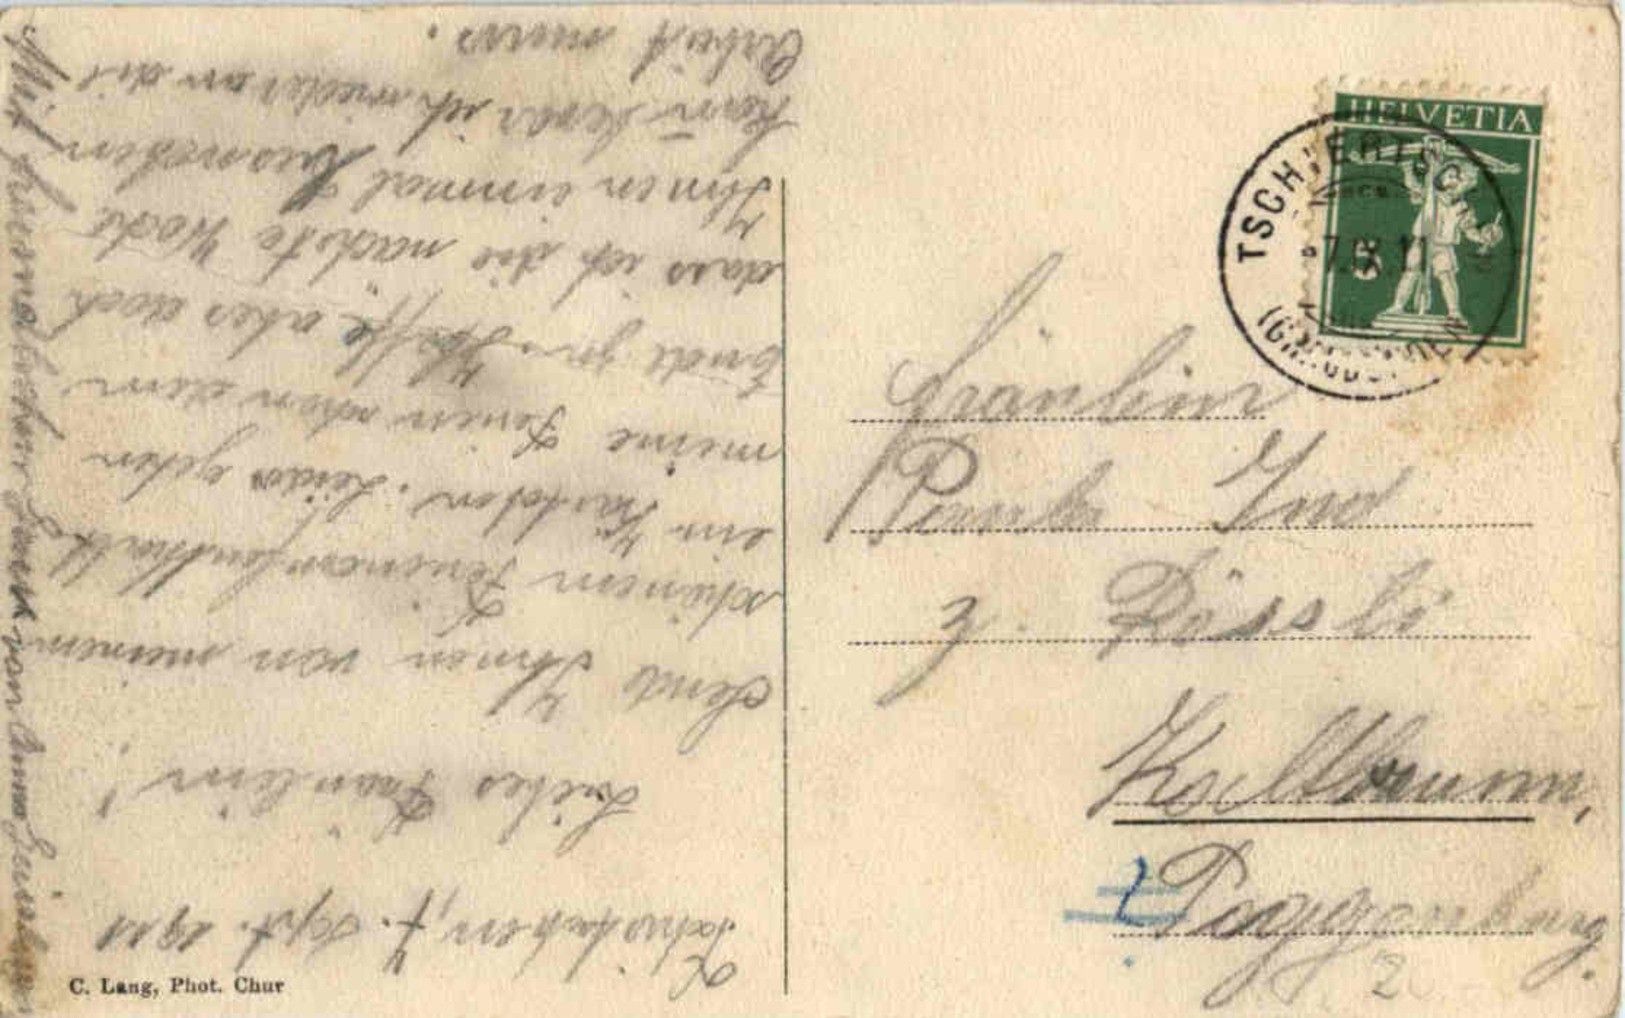 Tschiertschen, 7. Sept. 1911
Liebes Fräulein!
Sende Ihnen von meinem
schönem Ferienaufenthalt
ein Kärtchen. Leider gehen
meine Ferien schon dem
Ende zu. Hoffe aber doch
dass ich die nächste Woche
Ihnen einmal
kann bevor ich wieder an die
Arbeit muss.
Mit freundlichem Gruss von Anna
C. Lang, Phot. Chur
HELVETIA
5
TSCHIERTSCHEN
7.IX.11
(GRAUBÜNDEN)
Fräulein
z. Rössli
Kaltbrunn,
Toggenburg.
2